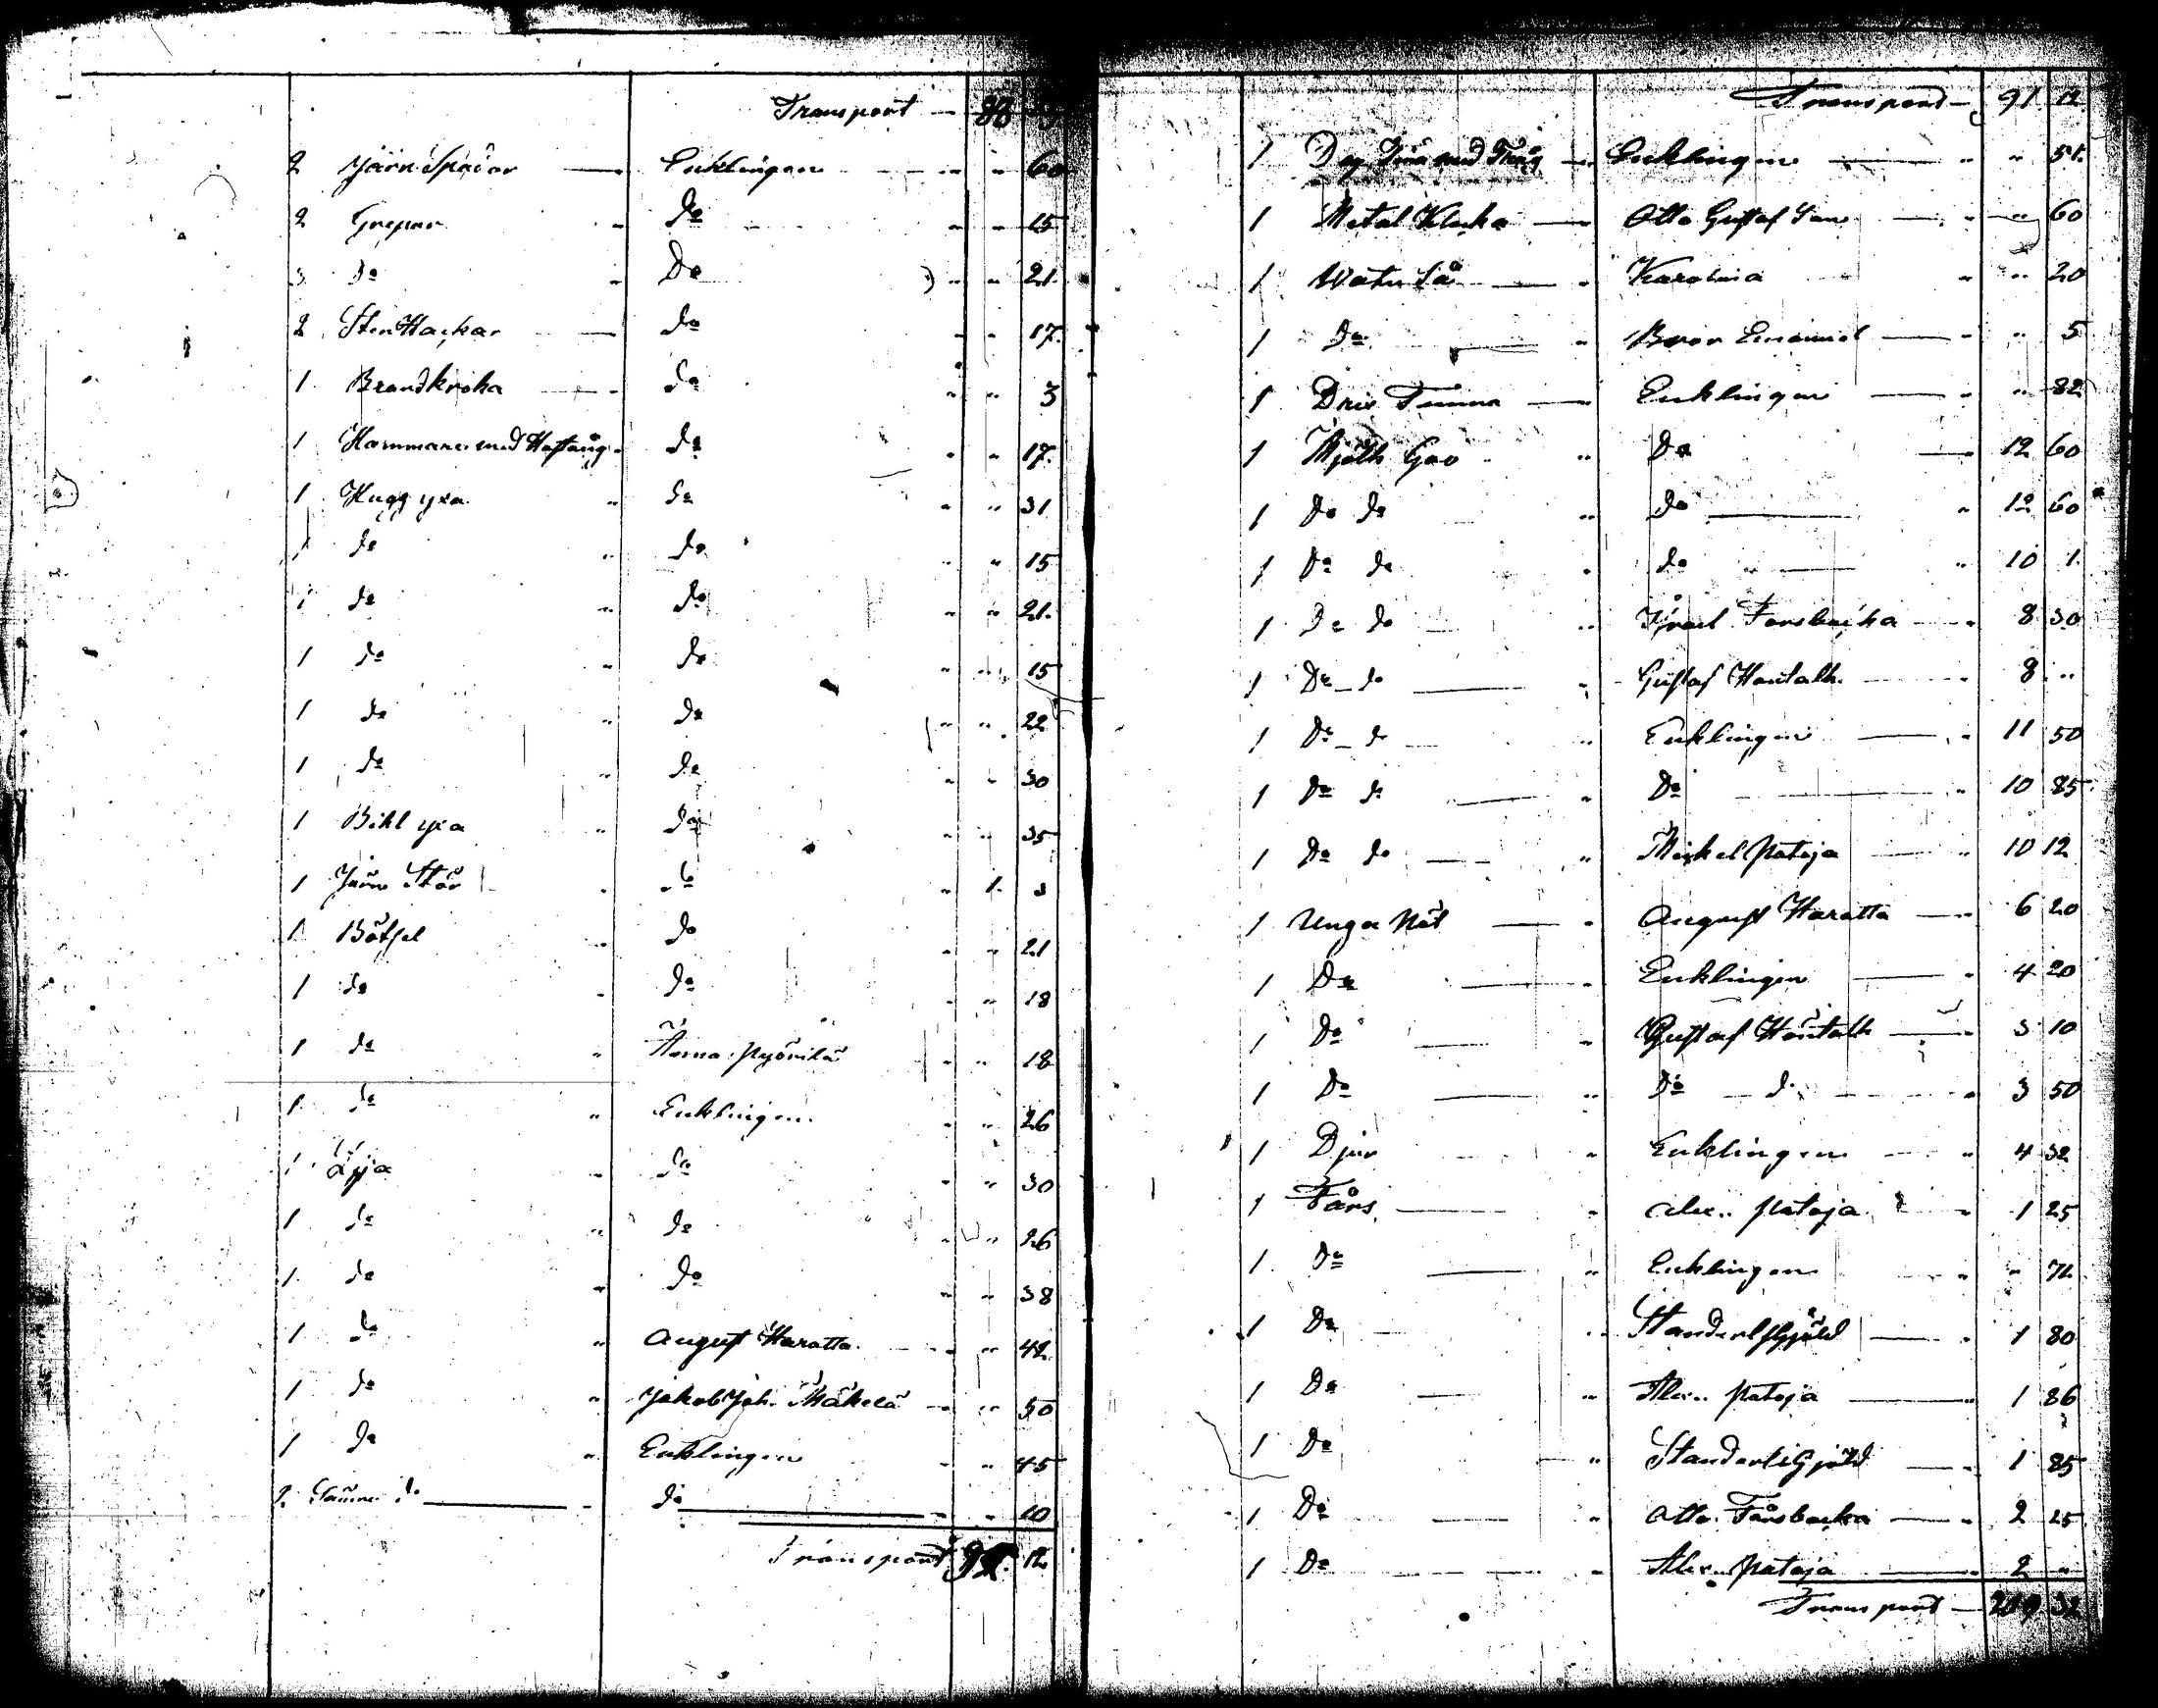 Transport — 88
2 Järn Spador — Enklingen " " 60
2 Grepar " do " " 15
3 do " Do " " 21
2 Sten Hackar — do " " 17
1 Brandkroka — do " " 3
1 Hammare med Hoftång do " " 17
1 Hugg yxa " do " " 31
1 do " do " " 15
1 do " do " " 21
1 do " do " " 15
1 do " do " " 22
1 do " do " " 30
1 Bihl yxa " do " " 35
1 Järn Stör do " 1 3
1 Bötsel " do " " 21
1 do " do " " 18
1 do " Anna Pyörilä " " 18
1 do " Enklingen " " 26
1 Lyja " do " " 30
1 do " do " " 26
1 do " do " " 38
1 do " August Haratta " " 42
1 do " Jakob Joh. Mäkelä " " 50
1 do " Enklingen " " 45
2 do — do — " " 10
Transport 91 12
Transport — 91 12
1 med — Enklingen — " " 51
1 Metal Klocka — Otto Gustaf Son — " " 60
1 Watu Så — Karolina " " 20
1 Do — Bror Emanuel — " " 5
1 Drix Tunna — Enklingen — " " 82
1 Mjölk Goo " Do — 12 60
1 Do do " Do — " 12 60
1 Do do " do — " 10 1
1 Do do — " Israel Forsbacka — 8 30
1 Do do — " Gustaf Hautalk — 8 "
1 Do do — " Enklingen — " 11 50
1 Do do — " Do — " 10 85
1 Do do — " Mickel Pataja — " 10 12
1 Unga Nöt — " August Haratta — 6 20
1 Do — " Enklingen — " 4 20
1 Do — " Gustaf Hautalk — 3 10
1 Do — " Do do — " 3 50
1 Djur — " Enklingen — " 4 32
1 Fårs — " Alex. Pataja — " 1 25
1 Do — " Enklingen " " 72
1 Do " — " 1 80
1 Do — " Alex. Pataja — " 1 86
1 Do — " — 1 85
1 Do — " Otto Forsbacka — " 2 25
1 Do — " Alex. Pataja — 2 "
Transport — 219 32